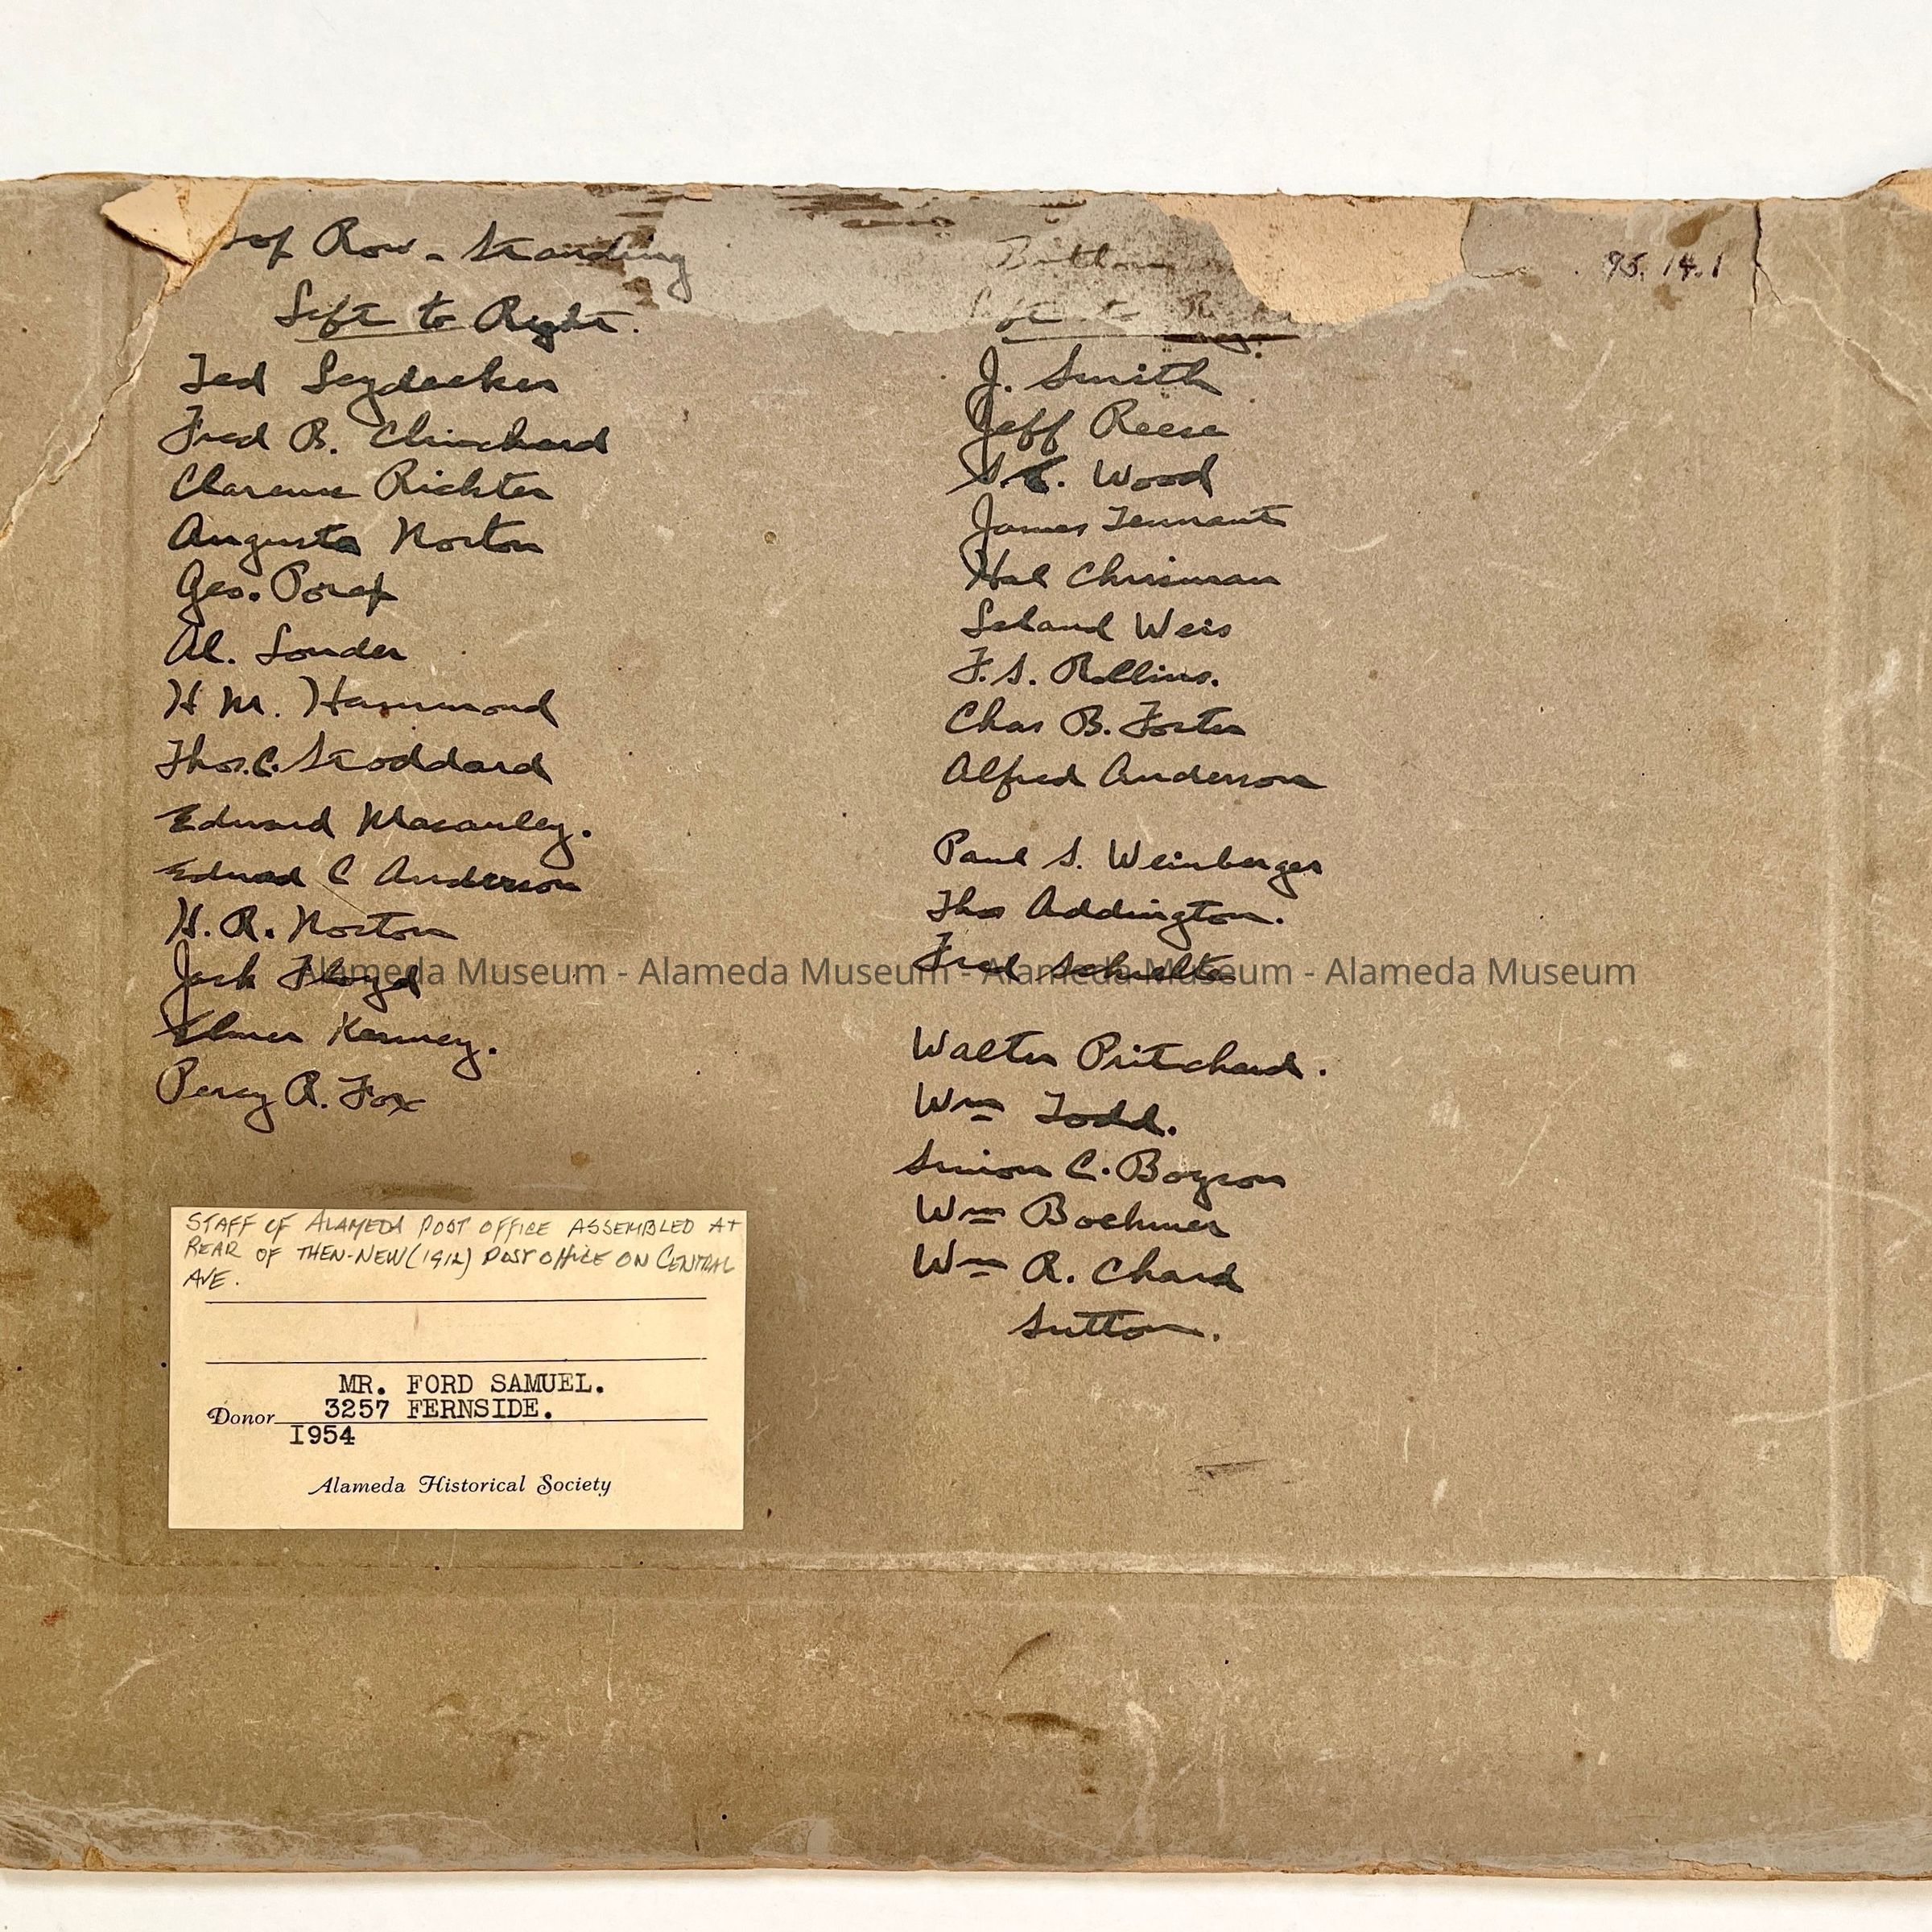 Top Row - Standing
Left to Right.
Ted Leydecker
Fred B. Chinchard
Clarence Richter
Augusta Norton
Geo. Poref
Al. Souder
H M. Hammond
Thos. C. Stoddard
Edward Macauley.
Edward C Anderson
H. R. Norton
Jack Floyd
Elmer Kenney.
Percy R. Fox
Bottom
Left to R
J. Smith
Jeff Reese
Wood
James Tennant
Hal Chrisman
Leland Weis
F. S. Rollins.
Chas B. Foster
Alfred Anderson
Paul S. Weinberger
Thos Addington.
Fred Schulte
Walter Pritchard.
Wm Todd.
Simon C. Boyson
Wm Boehmer
Wm R. Chard
Sutton.
95.14.1
STAFF OF ALAMEDA POST OFFICE ASSEMBLED AT
REAR OF THEN-NEW (1912) POST OFFICE ON CENTRAL
AVE.
MR. FORD SAMUEL.
Donor 3257 FERNSIDE.
I954
Alameda Historical Society
Alameda Museum - Alameda Museum - Alameda Museum - Alameda Museum